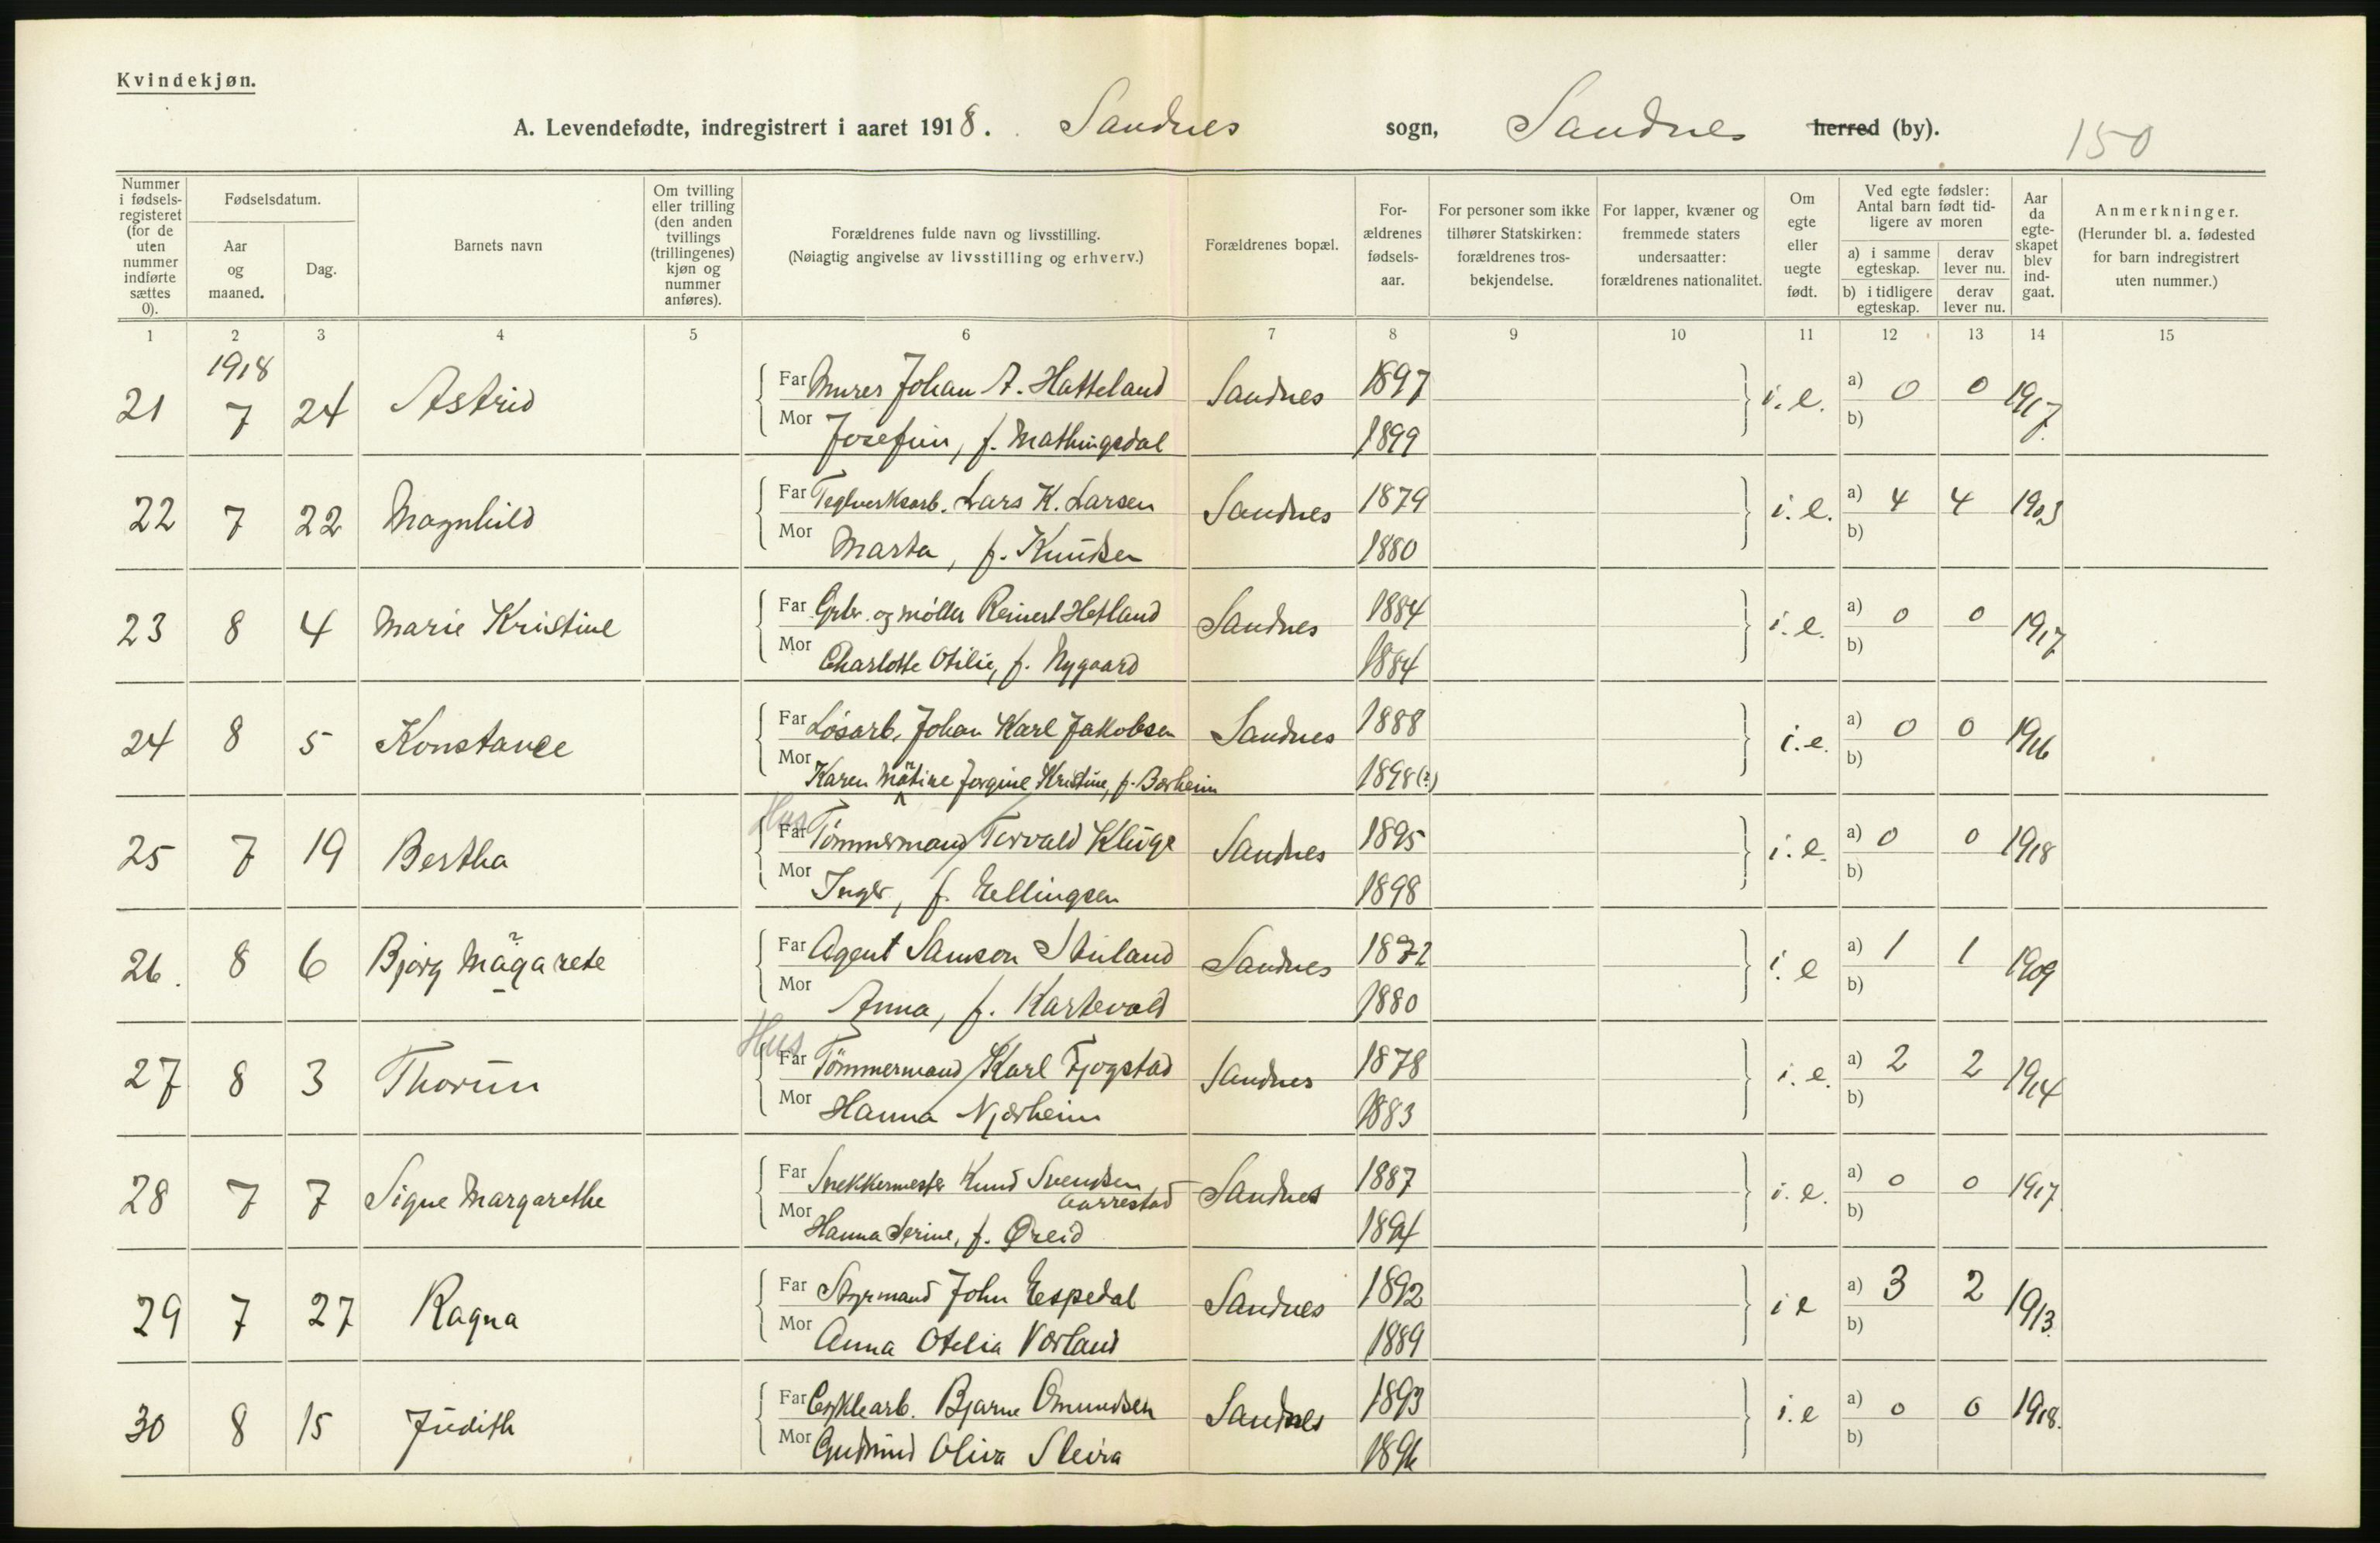 Kvindekjøn.
A. Levendefødte, indregistrert i aaret 1918. Sandnes sogn, Sandnes herred (by). 150
Nummer i fødselsregisteret (for de uten nummer indførte sættes 0).
Fødselsdatum.
Aar og maaned.
Dag.
Barnets navn
Om tvilling eller trilling (den anden tvillings (trillingenes) kjøn og nummer anføres).
Forældrenes fulde navn og livsstilling.
(Nøiagtig angivelse av livsstilling og erhverv.)
Forældrenes bopæl.
Forældrenes fødselsaar.
For personer som ikke tilhører Statskirken: forældrenes trosbekjendelse.
For lapper, kvæner og fremmede staters undersaatter: forældrenes nationalitet.
Om egte eller uegte født.
Ved egte fødsler: Antal barn født tidligere av moren
a) i samme egteskap.
derav lever nu.
b) i tidligere egteskap.
derav lever nu.
Aar da egteskapet blev indgaat.
Anmerkninger.
(Herunder bl. a. fødested for barn indregistrert uten nummer.)
1 2 3 4 5 6 7 8 9 10 11 12 13 14 15
1918
21 7 24 Astrid Far Murer Johan A. Hatteland Sandnes 1897 i. e. a) 0 0 1917.
Mor Josefin, f. Mathingsdal 1899 b)
22 7 22 Magnhild Far Teglverksarb. Lars K. Larsen Sandnes 1879 i. e. a) 4 4 1903
Mor Marta, f. Knudsen 1880 b)
23 8 4 Marie Kristine Far Grbr. og møller Reinert Hetland Sandnes 1884 i. e. a) 0 0 1917
Mor Charlotte Otilie, f. Nygaard 1884 b)
24 8 5 Konstance Far Løsarb. Johan Karl Jakobsen Sandnes 1888 i. e. a) 0 0 1916
Mor Karen Matine Jorgine Kristine, f. Borheim 1898 (?) b)
Hus
25 7 19 Bertha Far Tömmermand/Torvald Kluge Sandnes 1895 i. e. a) 0 0 1918
Mor Inger, f. Eellingsen 1898 b)
26. 8 6 Bjorg Magarete Far Agent Samson Stuland Sandnes 1872 i. e a) 1 1 1909
Mor Anna, f. Kartevold 1880 b)
Hus
27 8 3 Thorun Far Tömmermand/Karl Fjogstad Sandnes 1878 i. e. a) 2 2 1914
Mor Hanna Njærheim 1883 b)
28 7 7 Signe Margarethe Far Snekkermester Knud Svendsen Aarrestad Sandnes 1887 i. e. a) 0 0 1917
Mor Hanna Serine, f. Øreid 1894 b)
29 7 27 Ragna Far Styrmand John Espedal Sandnes 1892 i e a) 3 2 1913.
Mor Anna Otelia Vorland 1889 b)
30 8 15 Judith Far Cyklearb. Bjarne Omundsen Sandnes 1893 i. e a) 0 0 1918.
Mor Gudrund Oliva Sleira 1896 b)